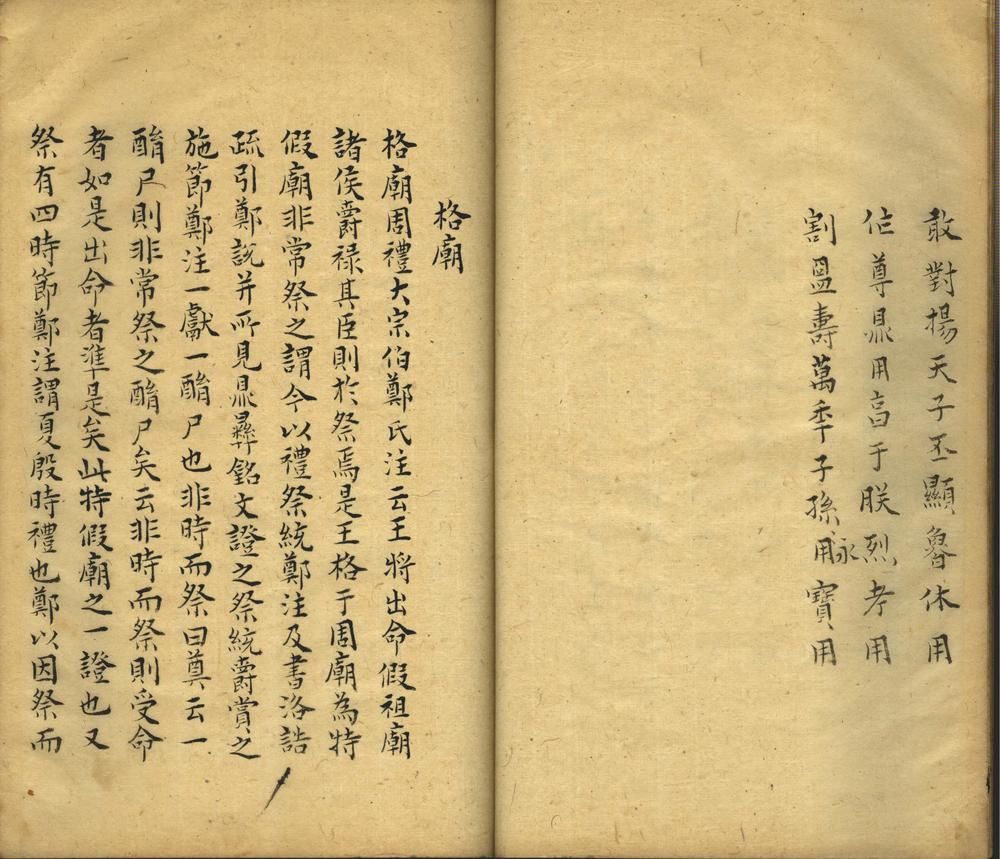 敢對揚天子丕顯魯休用
㐰尊鼎用亯于朕烈考用
割𥁕壽萬秊子孫永用寶用
格廟
格廟周禮大宗伯鄭氏注云王將出命假祖廟
諸侯爵祿其臣則於祭焉是王格于周廟為特
假廟非常祭之謂今以禮祭統鄭注及書洛誥
疏引鄭說并所見鼎彝銘文證之祭統爵賞之
施節鄭注一獻一酳尸也非時而祭曰奠云一
酳尸則非常祭之酳尸矣云非時而祭則受命
者如是出命者準是矣此特假廟之一證也又
祭有四時節鄭注謂夏殷時禮也鄭以因祭而